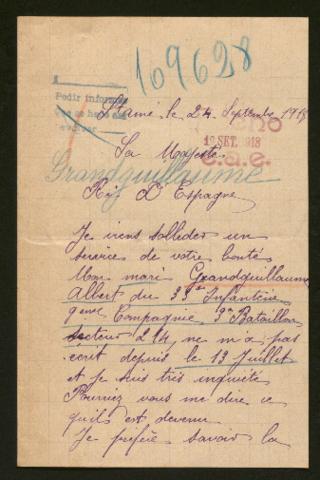 109628
Pedir informes
que se haga así
Stamé, le 24 Septembre 1918
SET. 1918
Sa Majesté
Grandguillaume
Roi D'Espagne
Je viens solleder un
service de votre bonté
Mon mari Grandguillaume
Albert du 33e Infanterie
9eme Compagnie 3e Bataillon
secteur 214, ne m'a pas
écrit depuis le 13 Juillet
et je suis très inquiète
Pourriez vous me dire ce
qu'il est devenu
Je préfère savoir la